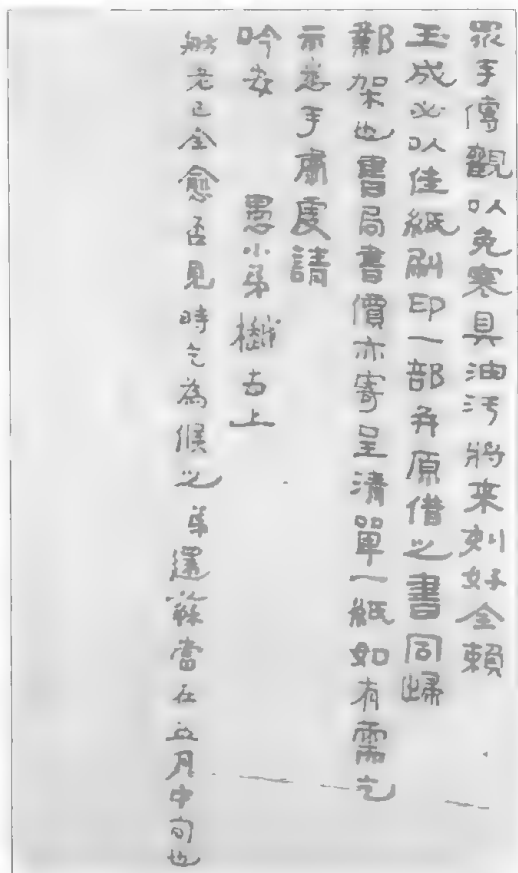 眾手傳觀以免寒具油汚將来刻好全賴
玉成必以佳紙刷印一部并原借之書同歸
鄴架也書局書價亦寄呈清單一紙如有需乞
示悉手肅虔請
吟安 愚小弟樾頓首上
舫老已全愈否見時乞為候之弟還蘇當在五月中旬也